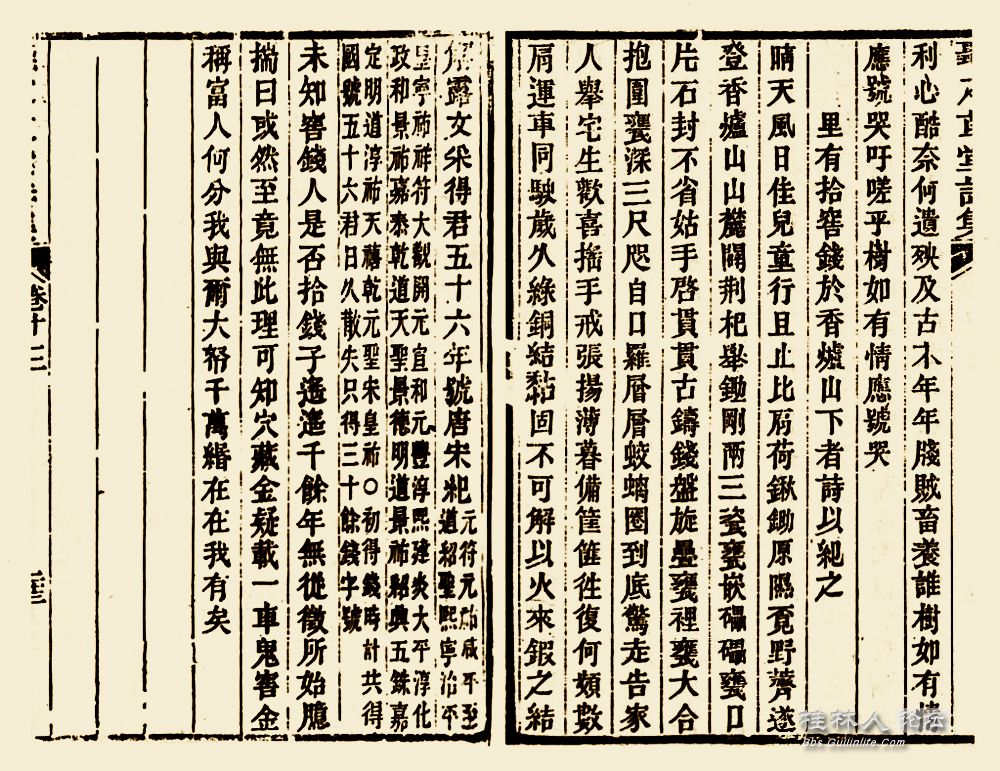 利心酷奈何遺殃及古木年年戕賊畜養誰樹如有情
應號哭吁嗟乎樹如有情應號哭
里有拾窖錢於香爐山下者詩以紀之
晴天風日佳兒童行且止比肩荷鍬鋤原隰覓野薺遂
登香爐山山麓闢荆杞舉鋤剛兩三瓷甕嵌礧礧甕口
片石封不省姑手啓貫貫古鑄錢盤旋壘甕裡甕大合
抱圍甕深三尺咫自口羅層層蛟螭圈到底驚走告家
人舉宅生歡喜搖手戒張揚薄暮備筐篚徃復何頻數
肩運車同駛歲久綠銅結黏固不可解以火來鍜之結
解露文采得君五十六年號唐宋紀元符元祐咸平至道紹聖熙寧治平
皇寧祐祥符大觀開元宣和元豐淳熙建炎大平淳化
政和景祐嘉泰乾道天聖景德明道景祐紹興五銖嘉
定明道淳祐天禧乾元聖宋皇祐○初得錢時計共得
國號五十六君日久散失只得三十餘錢字號
未知窖錢人是否拾錢子遙遙千餘年無從徵所始臆
揣曰或然至竟無此理可知穴藏金疑載一車鬼窖金
稱富人何分我與爾大帑千萬緡在在我有矣
卷十三
桂林人论坛
bbs.Guilinlife.Com